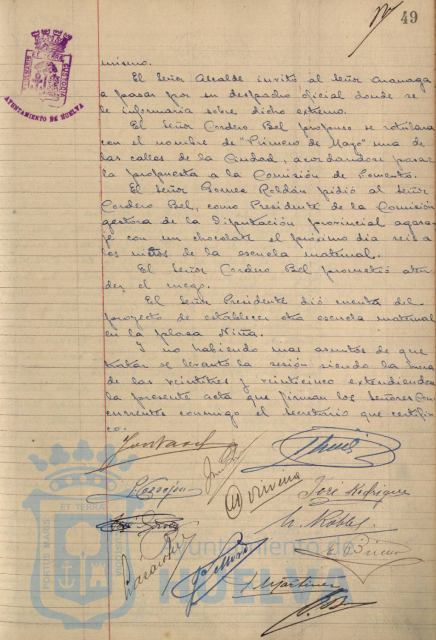 49
AYUNTAMIENTO DE HUELVA
mismo.
El Señor Alcalde invitó al Señor
a pasar por su despacho oficial donde se
le informaria sobre dicho extremo.
El Señor Cordero Bel propuso se rotulara
con el nombre de "Primero de Mayo" una de
las calles de la Ciudad, acordandose pasar
la propuesta a la Comisión de Fomento.
El Señor Gomez Roldán pidió al Señor
Cordero Bel, como Presidente de la Comisión
gestora de la Diputación provincial agasa-
je con un chocolate el próximo dia seis a
los niños de la escuela maternal.
El Señor Cordero Bel prometió aten-
der el ruego.
El Señor Presidente dió cuenta del
proyecto de establecer otra escuela maternal
en la plaza Niña.
Y no habiendo mas asuntos de que
tratar se levanto la sesión siendo la una
de las veintitres y veinticinco extendiendose
la presente acta que firman los Señores con-
currentes conmigo el Secretario que certifi-
co.
José Rodriguez
Robles
Martinez
PORTUS MARIS ET TERRÆ CUSTODIA
Ayuntamiento de
HUELVA